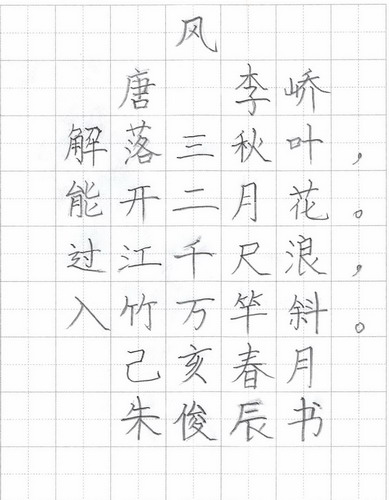 风
唐 李峤
解落三秋叶，
能开二月花。
过江千尺浪，
入竹万竿斜。
己亥春月
朱俊辰书